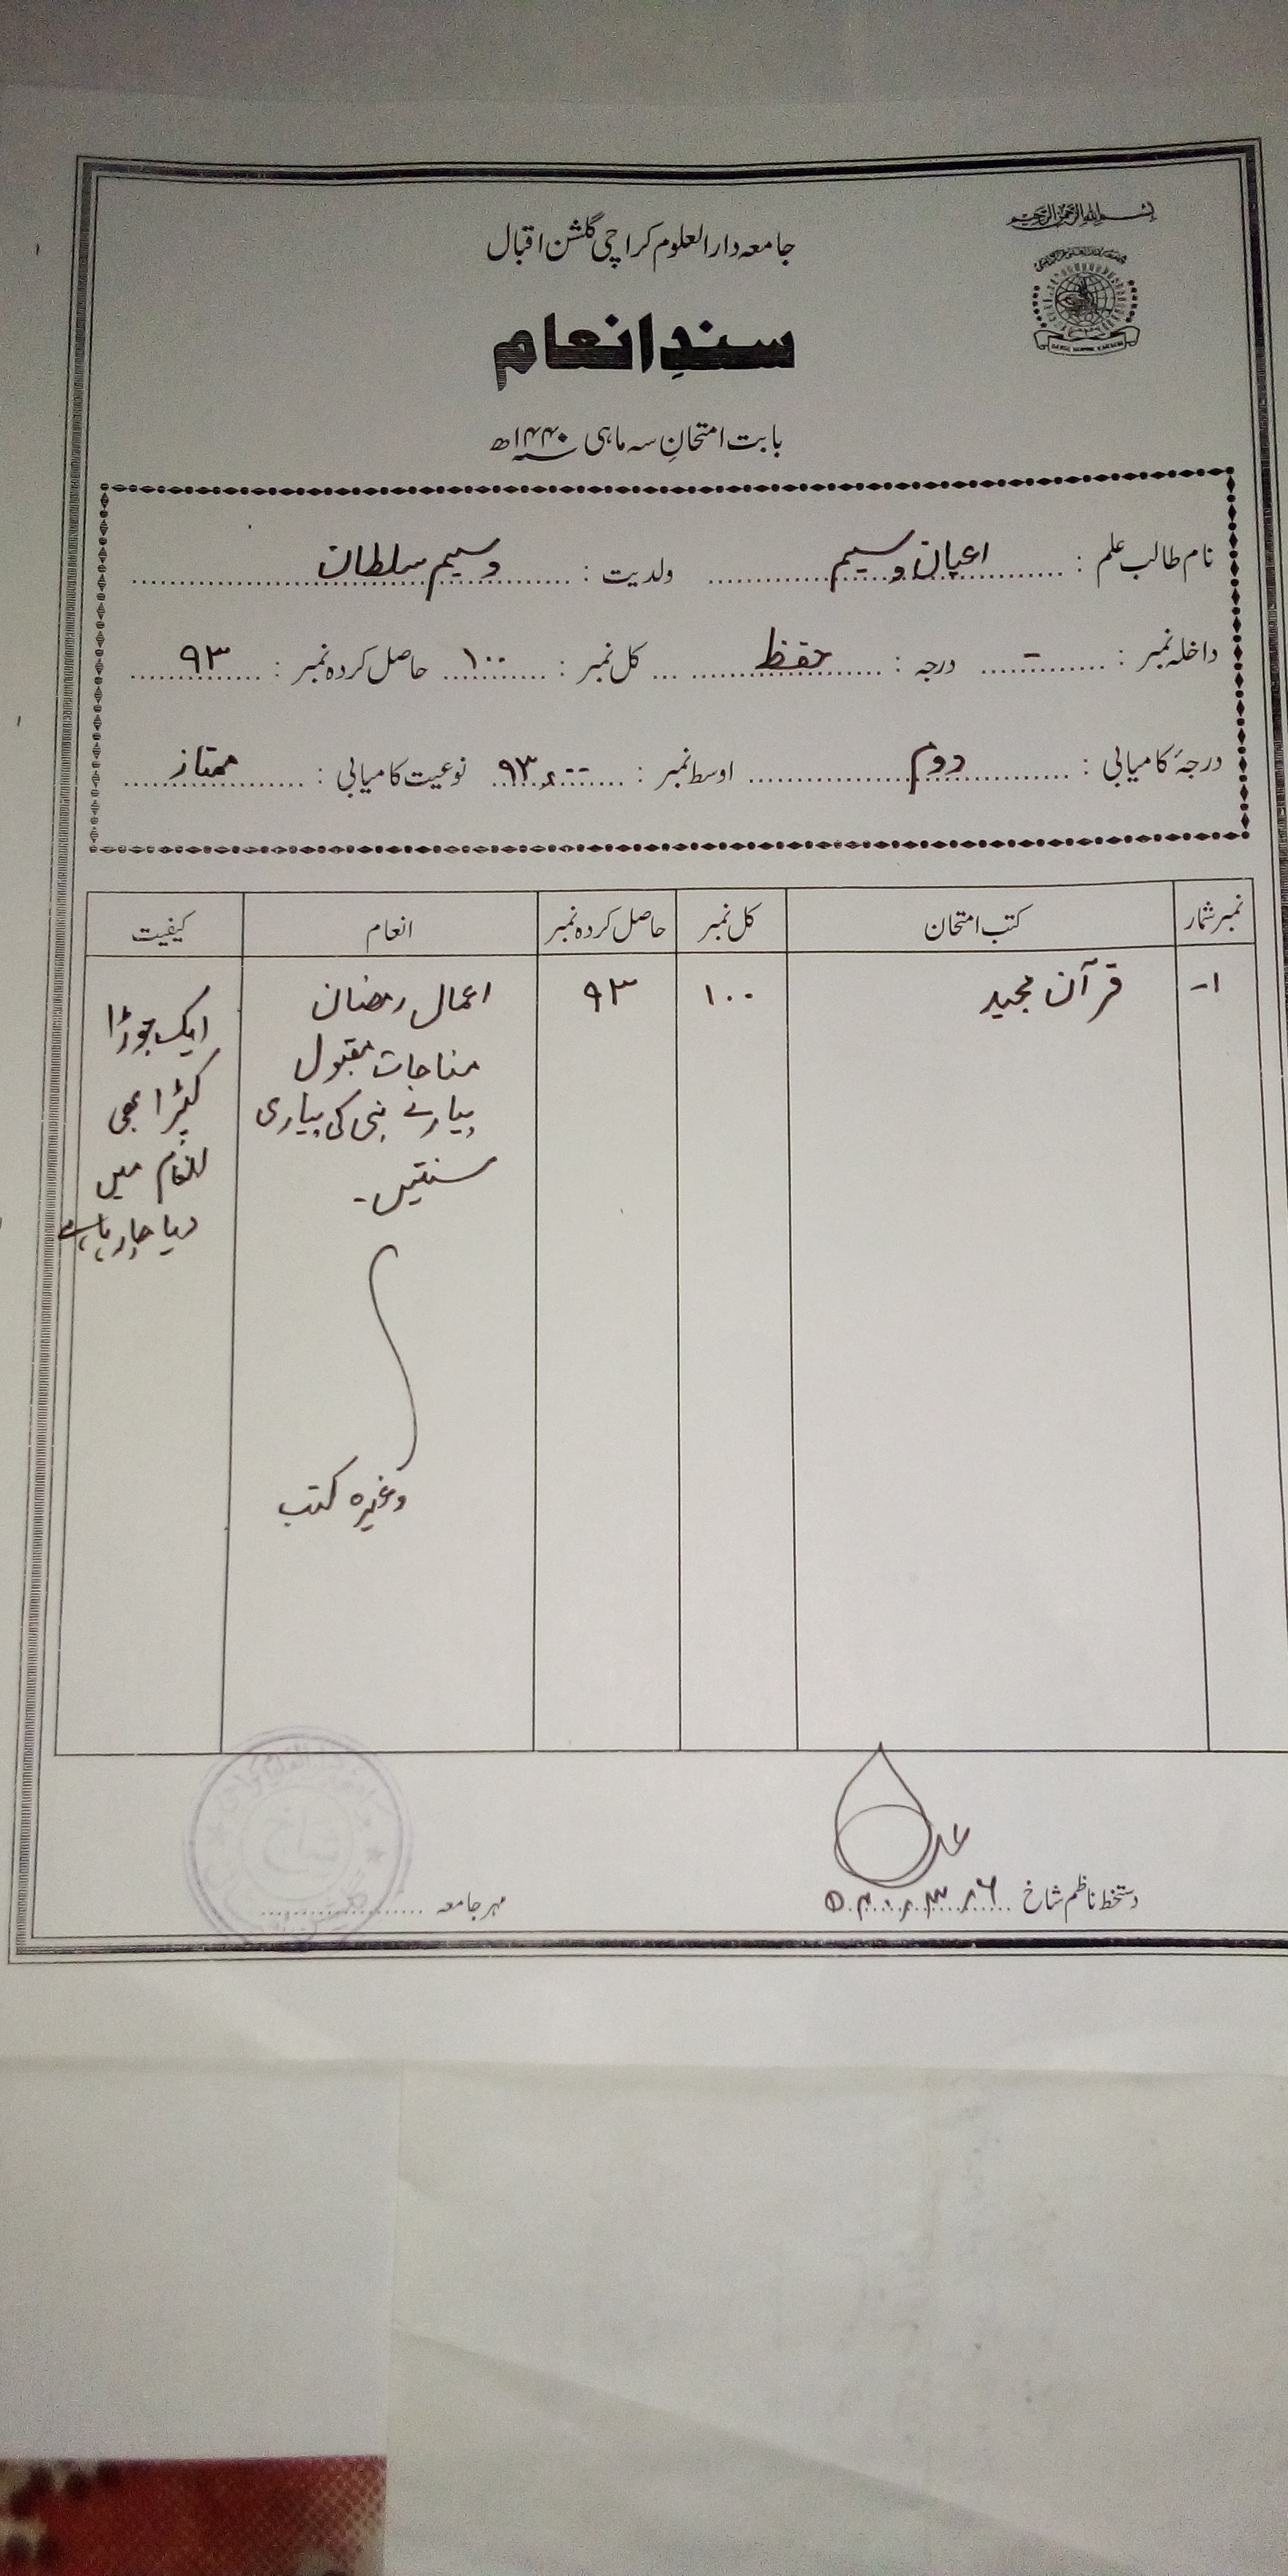 بسم اللہ الرحمن الرحیم
جامعہ دارالعلوم کراچی گلشن اقبال
سندِ انعام
بابت امتحانِ سہ ماہی ۱۴۴۰ھ
نام طالب علم : اعیان وسیم ولدیت : وسیم سلطان
داخلہ نمبر : - درجہ : حفظ کل نمبر : ۱۰۰ حاصل کردہ نمبر : ۹۳
درجۂ کامیابی : دوم اوسط نمبر : ۹۳٫۰۰ نوعیت کامیابی : ممتاز
نمبر شمار کتب امتحان کل نمبر حاصل کردہ نمبر انعام کیفیت
۱- قرآن مجید ۱۰۰ ۹۳ اعمال رمضان ایک جوڑا
مناجات مقبول کپڑا بھی
پیارے نبی کی پیاری انعام میں
سنتیں۔ دیا جا رہا ہے
وغیرہ کتب
دستخط ناظم شاخ مہر جامعہ